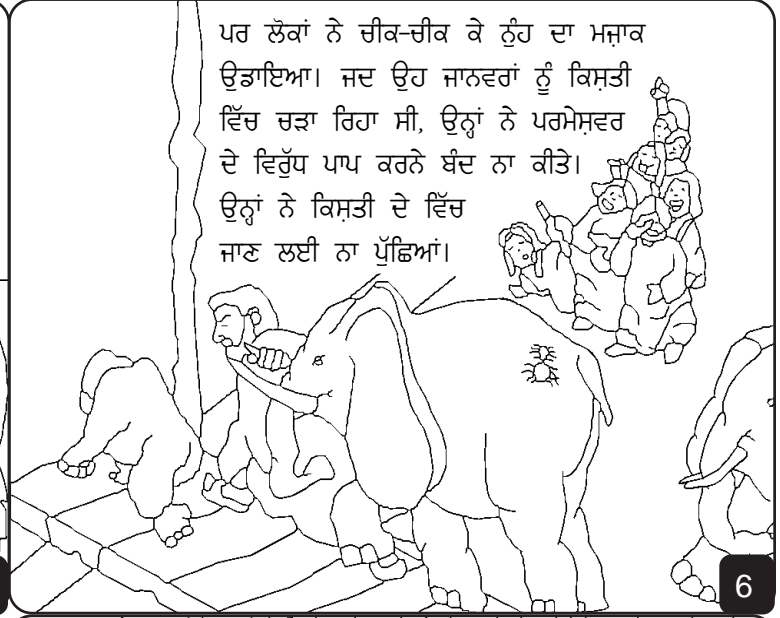 ਪਰ ਲੋਕਾਂ ਨੇ ਚੀਕ-ਚੀਕ ਕੇ ਨੂੰਹ ਦਾ ਮਜ਼ਾਕ
ਉਡਾਇਆ। ਜਦ ਉਹ ਜਾਨਵਰਾਂ ਨੂੰ ਕਿਸ਼ਤੀ
ਵਿੱਚ ਚੜਾ ਰਿਹਾ ਸੀ, ਉਨ੍ਹਾਂ ਨੇ ਪਰਮੇਸ਼ਵਰ
ਦੇ ਵਿਰੁੱਧ ਪਾਪ ਕਰਨੇ ਬੰਦ ਨਾ ਕੀਤੇ।
ਉਨ੍ਹਾਂ ਨੇ ਕਿਸ਼ਤੀ ਦੇ ਵਿੱਚ
ਜਾਣ ਲਈ ਨਾ ਪੁੱਛਿਆਂ।
6